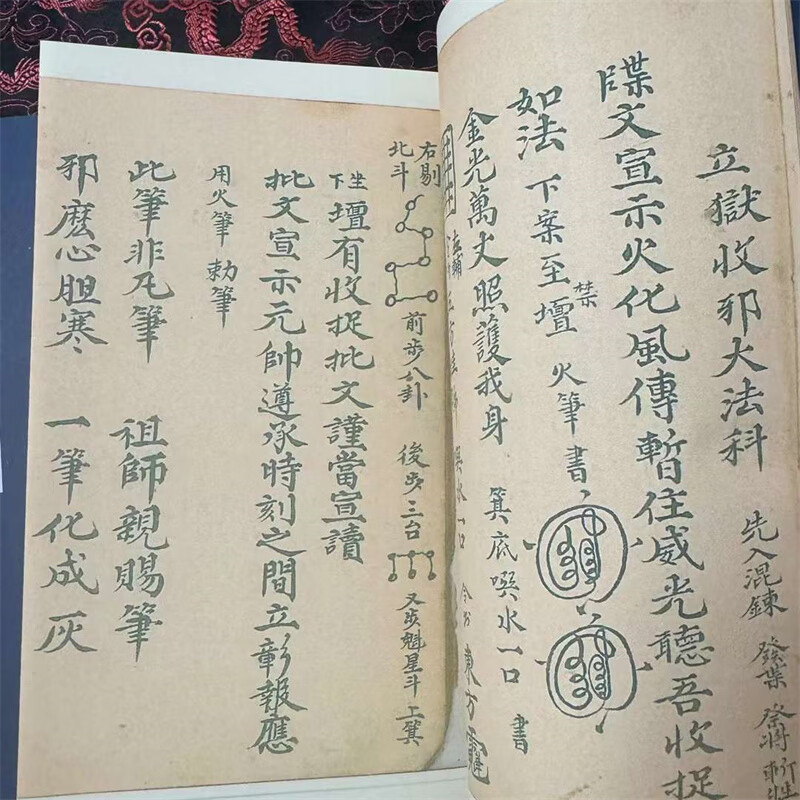 立獄收邪大法科 先入混鍊 發
牒文宣示火化風傳暫住威光聽吾收捉
如法 下案至壇 禁 火筆書
金光萬丈照護我身 箕底噀水一口 書
東方
右剔北斗 前步八卦 後步三台 又步魁星斗 上箕
坐下壇有收捉批文謹當宣讀
批文宣示元帥遵承時刻之間立彰報應
用火筆 勅筆
此筆非凡筆 祖師親賜筆
邪麽心胆寒 一筆化成灰